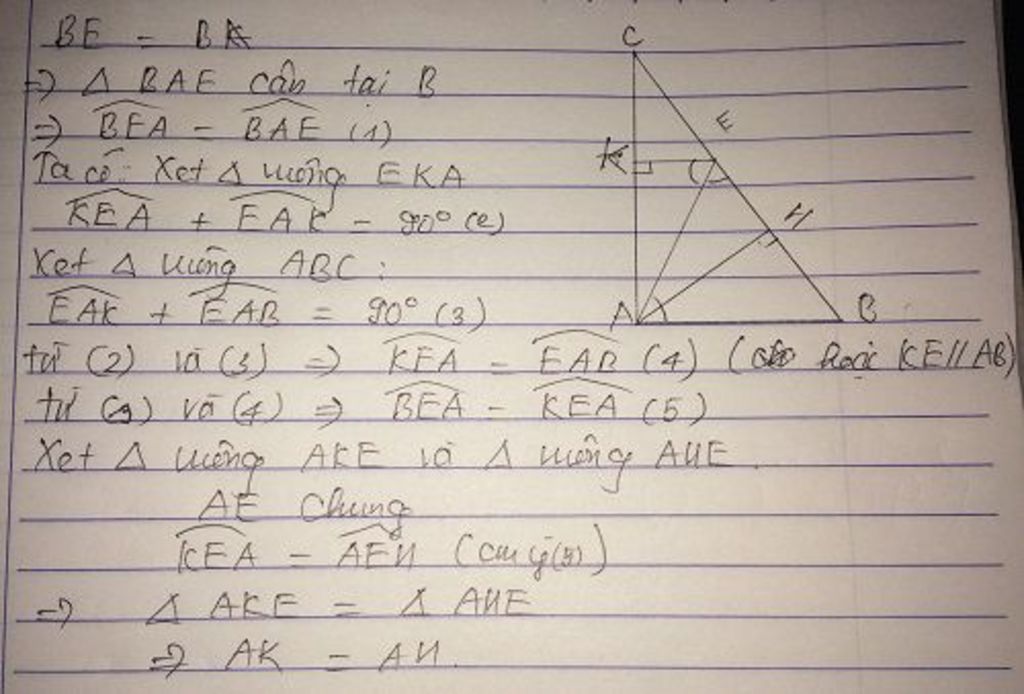 BE = BA
=> Δ BAE cân tại B
=> BEA = BAE (1)
Ta có: Xét Δ vuông EKA
KEA + EAK = 90° (2)
Xét Δ vuông ABC :
EAK + EAB = 90° (3)
từ (2) và (3) => KEA = EAB (4) ( hoặc KE // AB)
từ (1) và (4) => BEA = KEA (5)
Xét Δ vuông AKE và Δ vuông AHE .
AE chung
KEA = AEH (
=> Δ AKE = Δ AHE
=> AK = AH .
C
E
K
H
A
B